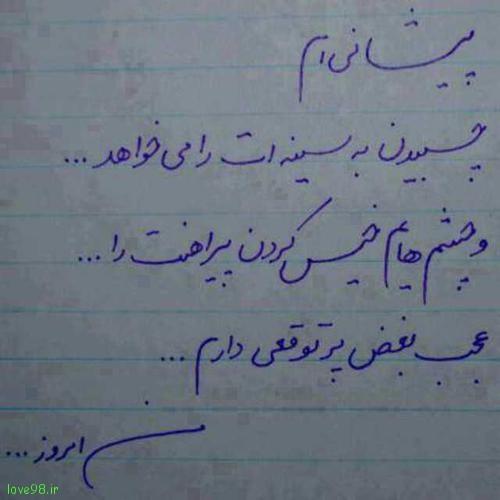 پیشانی ام
چسبیدن به سینه ات را می خواهد ...
و چشم هایم خیس کردن پیراهنت را ...
عجب بغض پر توقعی دارم ...
من امروز ...
love98.ir